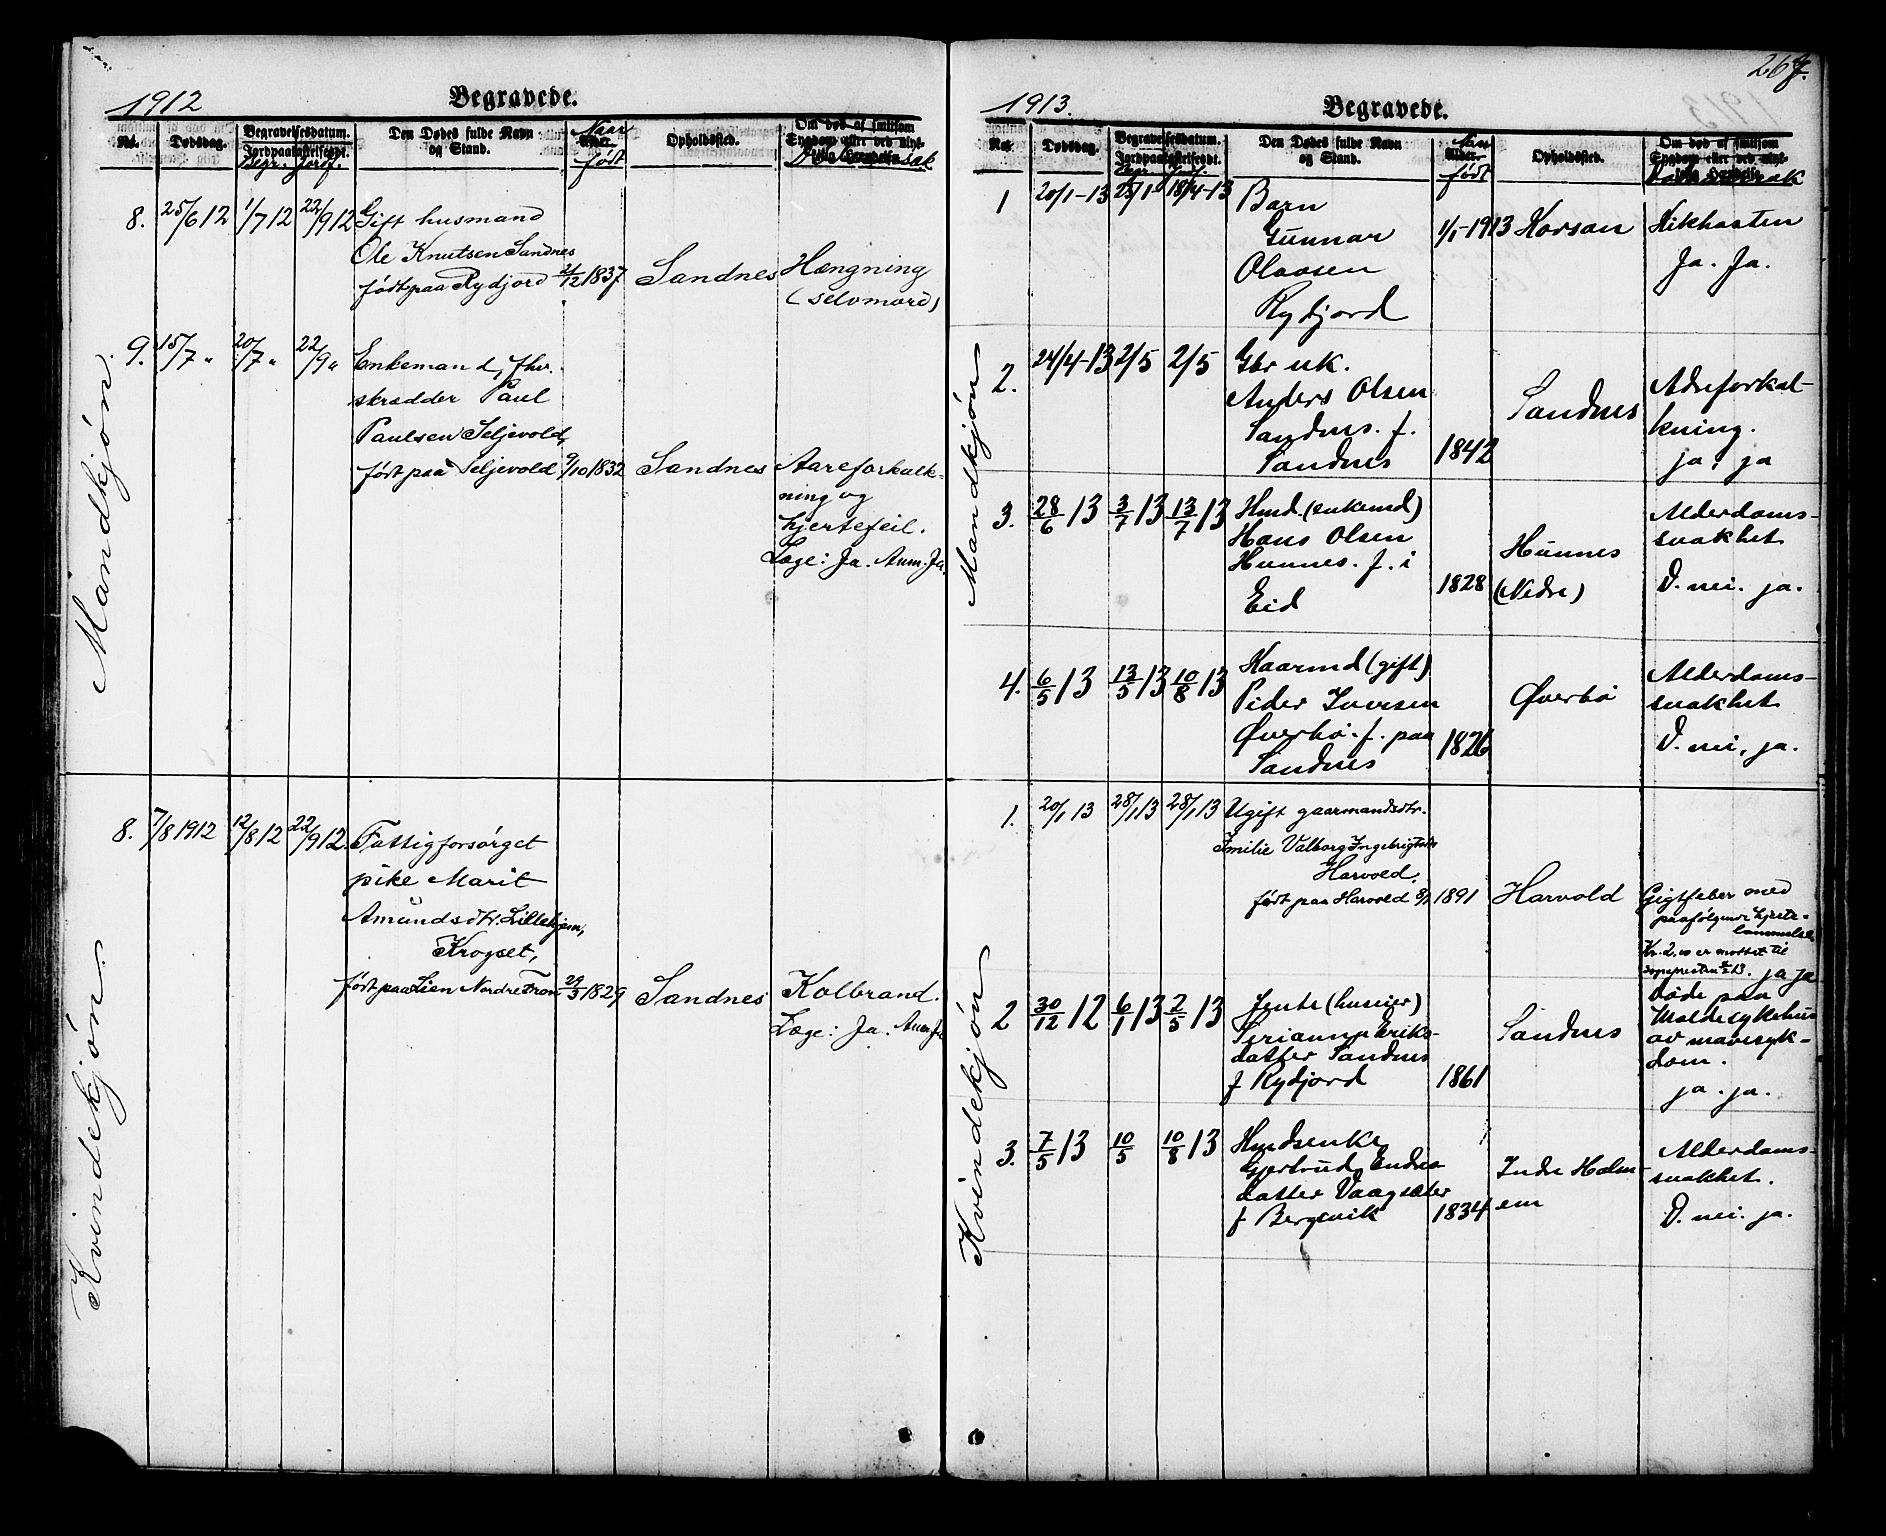 1912
Begravede.
No.
Dødsdag.
Begravelsesdatum.
Jordpaakastelsesdt.
Begr. Jordf.
Den Dødes fulde Navn
og Stand.
Naar
Alder
født
Opholdssted.
Om død af smitsom
Sygdom eller ved ulyk-
Dødsaarsak
Mandkjøn.
8. 25/6 12 1/7 12 22/9 12 Gift husmand
Ole Knutsen Sandnes
født paa Rydjord 21/12 1837 Sandnes Hængning
(selvmord)
9. 15/7 " 20/7 " 22/9 " Enkemand, fhv.
skrædder Paul
Paulsen Seljevold,
født paa Seljevold 9/10 1832 Sandnes Aareforkalk-
ning og
hjertefeil.
Læge: Ja. Anm. Ja.
Kvindekjøn.
8. 7/8 1912 12/8 12 22/9 12. Fattigforsørget
pike Marit
Amundsdtr. Lillehjem,
Krogset,
født paa Lien Nordre Fron 29/3 1829 Sandnes Kolbrand.
Læge: Ja. Anm. Ja
267.
1913.
Begravede.
No.
Dødsdag.
Begravelsesdatum.
Jordpaakastelsesdt.
Begr. Jordf.
Den Dødes fulde Navn
og Stand.
Naar
Alder
født
Opholdssted.
Om død af smitsom
Sygdom eller ved ulyk-
Dødsaarsak
Mandkjøn
1 20/1-13 28/1 18/4-13 Barn
Gunnar 1/1-1913 Horsan Kikhosten
Olaosen Ja. Ja.
Rydjord
2. 24/4-13 2/5 2/5 Gbr uk.
Anders Olsen Sandnes Adreforkal-
Sandnes. f. kning.
Sandnes 1842 ja. ja
3. 28/6 13 3/7 13 13/7 13 Hmd. (enkemd) Alderdoms-
Hans Olsen svakhet
Hunnes. f. i Hunnes
Eid 1828 (Nedre) D. nei. ja.
4. 6/5 13 13/5 13 10/8 13 Kaarmd (gift) Alderdoms-
Peder Iversen Øverbø svakhet
Øverbø. f. paa 1826 D. nei, ja.
Sandnes
Kvindekjøn
1. 20/1 13 28/1 13 28/1 13 Ugift gaarmandsdtr.
Emilie Valborg Ingebrigtsdtr
Harvold.
født paa Harvold 8/1 1891 Harvold Gigtfeber med
paafølgende hjerte-
lammelse
Kr. 2,00 er mottat til
sognepresten 13. ja ja
2 30/12 12 6/1 13 2/5 13 Jente (huseier) døde paa
Serianna Eriks- Sandnes Molde sykehus
datter Sandnes av mavesyk-
f Rydjord 1861 dom.
ja. ja.
3. 7/5 13 10/5 10/8 13 Hmdsenke Alderdoms-
Gjertrud Endre- Indre Holm- svakhet.
datter Vaagsæter em
f Bergsvik 1834 D. nei. ja.